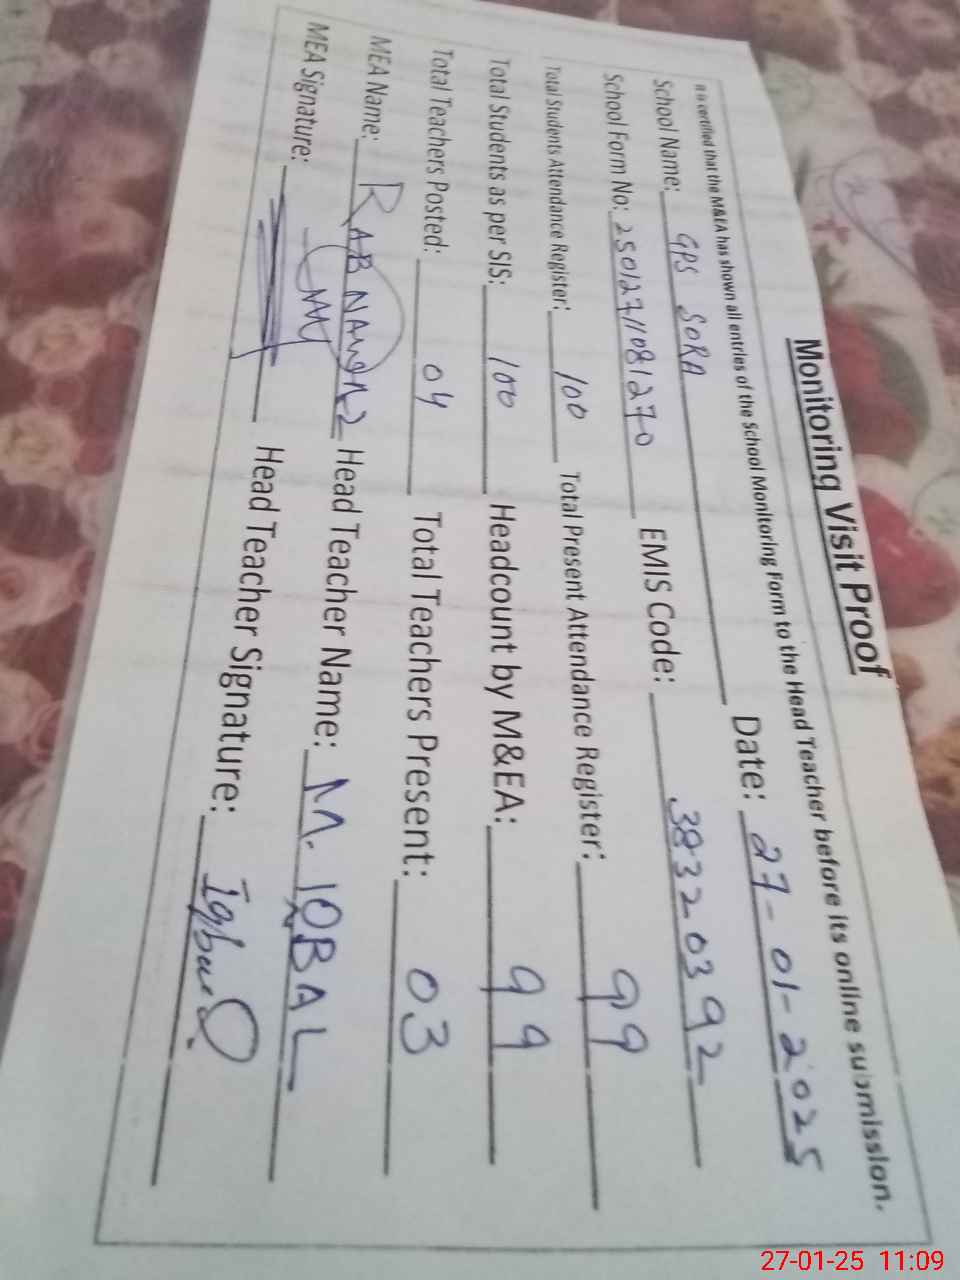 Monitoring Visit Proof
It is certified that the M&EA has shown all entries of the School Monitoring Form to the Head Teacher before its online submission.
School Name: GPS SORA Date: 27-01-2025
School Form No: 25012711081270 EMIS Code: 383220392
Total Students Attendance Register: 100 Total Present Attendance Register: 99
Total Students as per SIS: 100 Headcount by M&EA: 99
Total Teachers Posted: 04 Total Teachers Present: 03
MEA Name: RAB NAWAZ Head Teacher Name: M. IQBAL
MEA Signature: Head Teacher Signature: Iqbal
27-01-25 11:09